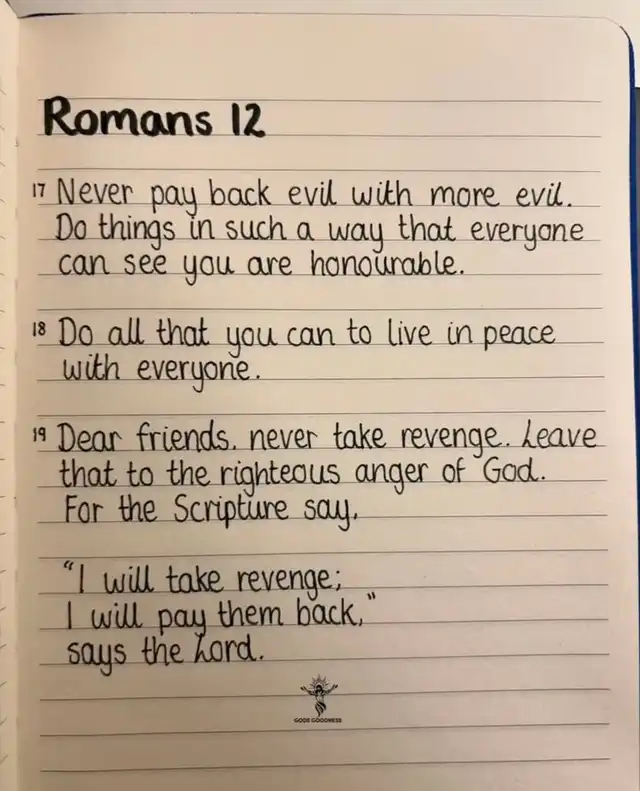 Romans 12
17 Never pay back evil with more evil.
Do things in such a way that everyone
can see you are honourable.
18 Do all that you can to live in peace
with everyone.
19 Dear friends. never take revenge. Leave
that to the righteous anger of God.
For the Scripture say,
"I will take revenge;
I will pay them back,"
says the Lord.
GODS GOODNESS